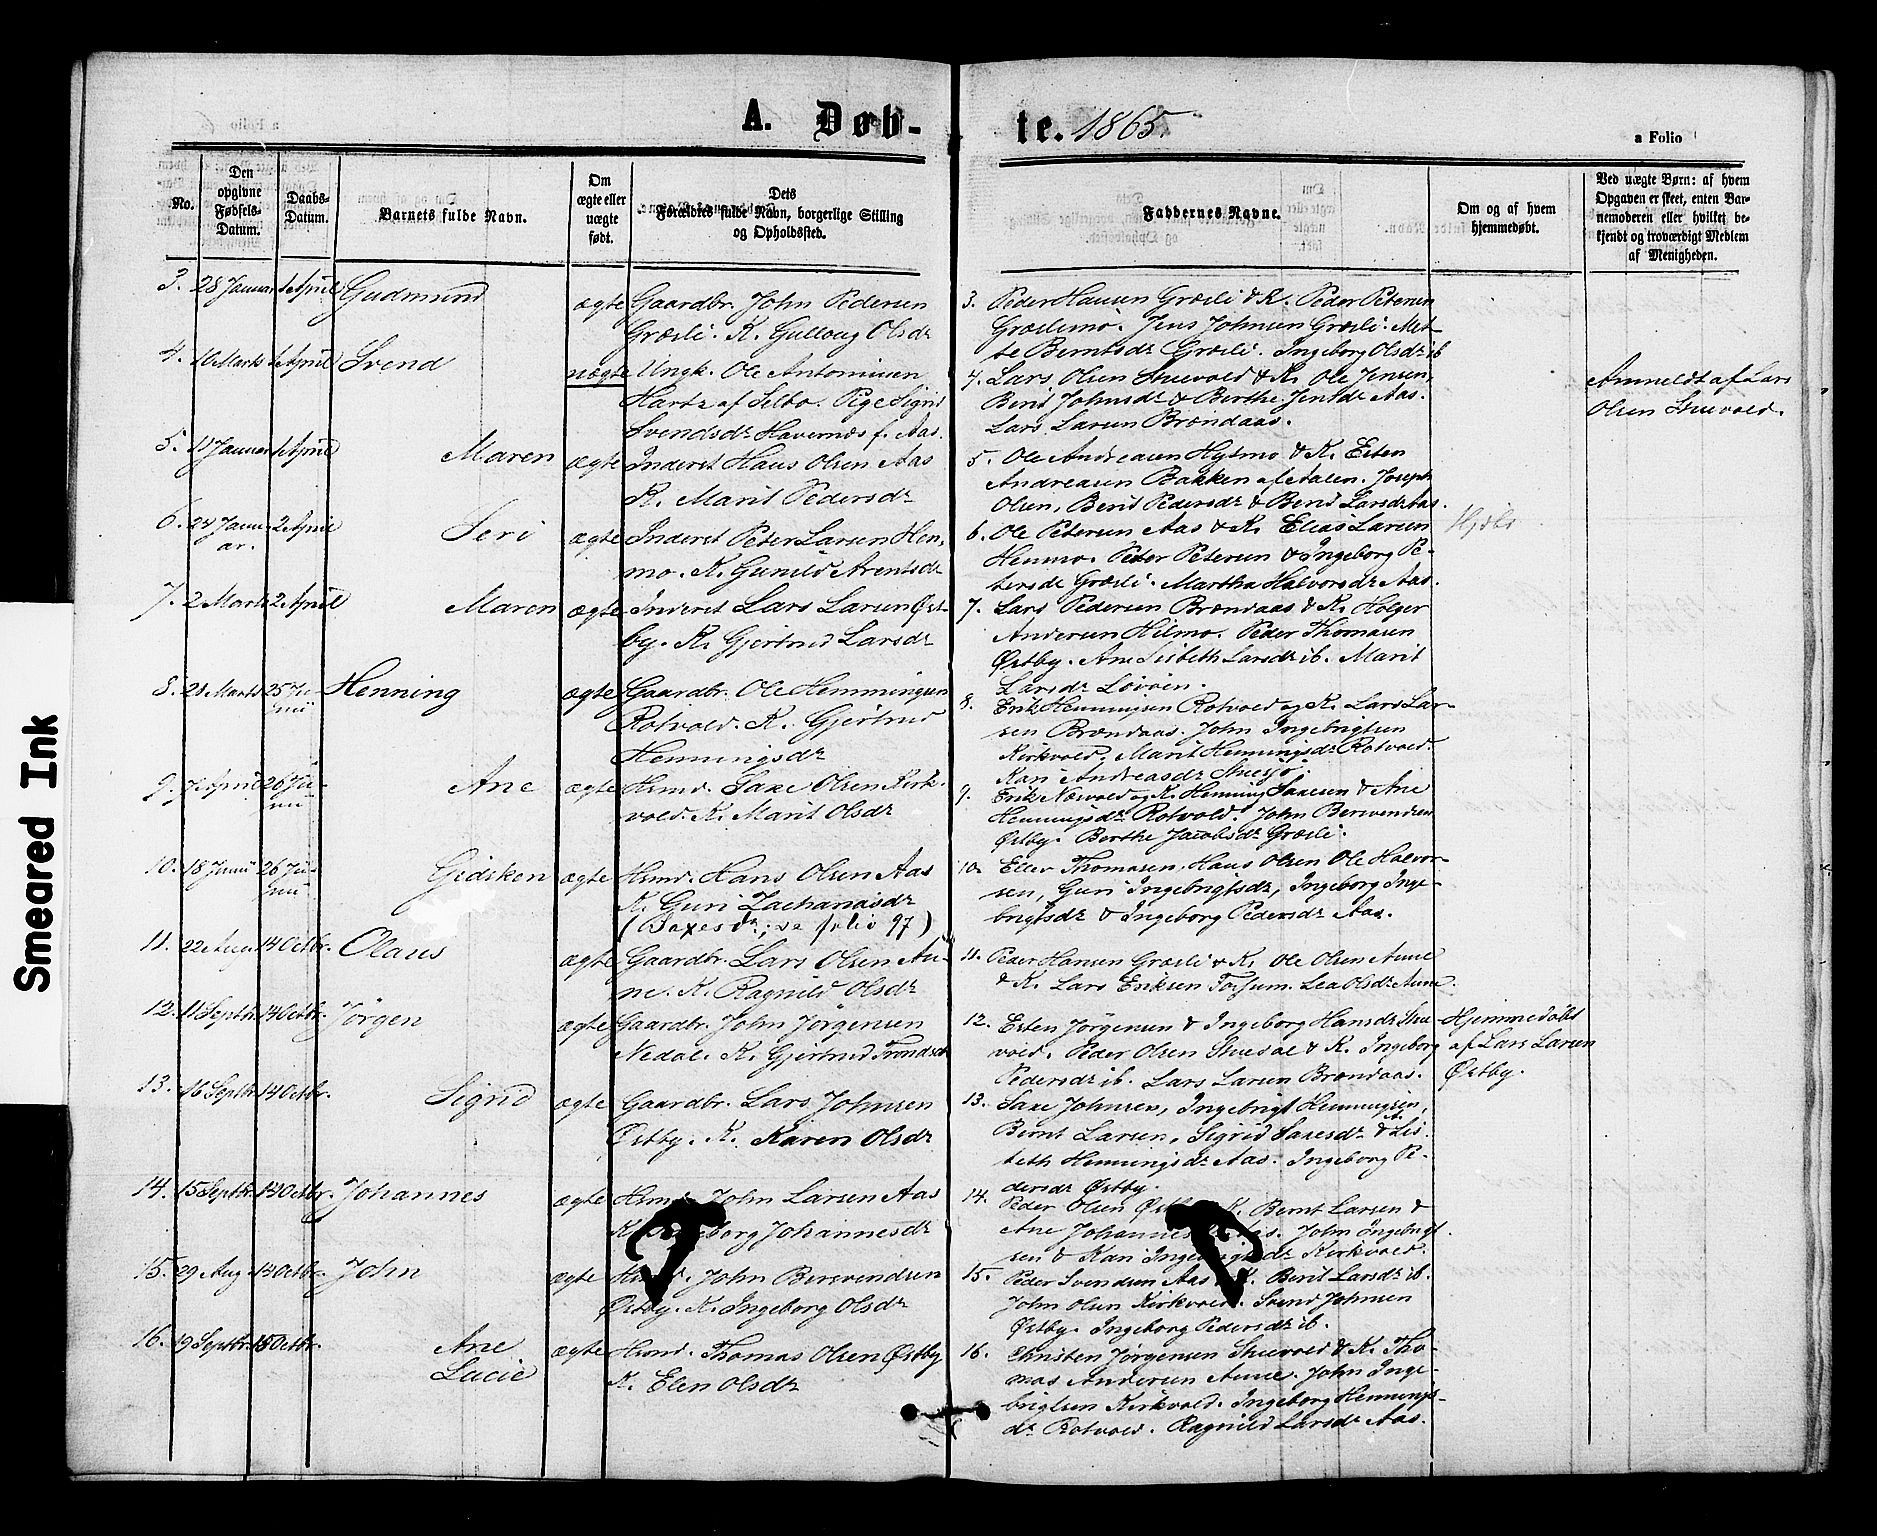 A. Døb-
te. 1865.
a Folio
No.
Den opgivne Fødsels-Datum.
Daabs-Datum.
Barnets fulde Navn.
Om ægte eller uægte født.
Dets Forældres fulde Navn, borgerlige Stilling og Opholdssted.
Faddernes Navne.
Om og af hvem hjemmedøbt.
Ved uægte Børn: af hvem Opgaven er skeet, enten Barnemoderen eller hvilket bekjendt og troværdigt Medlem af Menigheden.
3. 28 Januar 1 April Gudmund ægte Gaardbr. John Pedersen
Græsli. K. Gulloug Olsdr
3. Peder Hansen Græsli & K. Peder Petersen
Græslimo. Jens Johnsen Græsli. Met-
te Berntsdr Græsli. Ingeborg Olsdr ib
4. 10 Marts 1 April Svend uægte Ungk. Ole Antoniusen
Hartz af Selbo. Pige Sigrid
Svendsdr Havernæs f. Aas.
4. Lars Olsen Stuevold & K. Ole Jensen,
Berit Johnsdr & Berthe Jensdr Aas.
Lars Larsen Brændaas.
Anmeldt af Lars
Olsen Stuevold.
5. 11 Januar 1 April Maren ægte Inderst Hans Olsen Aas
K. Marit Pedersdr
5. Ole Andreasen Hytmo & K. Esten
Andreasen Bakken af Aalen. Joseph
Olsen, Berit Pedersdr & Berit Larsdr Aas.
6. 24 Janu- 2 April Seri ægte Inderst Peter Larsen Hen-
ar. mo. K. Gunild Arentsdr
6. Ole Petersen Aas & K. Elias Larsen
Henmo. Peter Petersen & Ingeborg Pe-
tersdr Græsli. Martha Halvorsdr Aas.
7. 2 Marts 2 April Maren ægte Inderst Lars Larsen Øst-
by. K. Gjertrud Larsdr
7. Lars Pedersen Brændaas & K. Holger
Andersen Hilmo. Peder Thomasen
Østby. Ane Lisbeth Larsdr ib. Marit
Larsdr Løvøen.
8. 28 Marts 25 Ju- Henning ægte Gaardbr. Ole Hemmingsen
nii Rotvold. K. Gjertrud
Henningsdr
8. Erik Henningsen Rotvold og K. Lars Lar-
sen Brændaas. John Ingebrigtsen
Kirkvold. Marit Henningsdr Rotvold.
Kari Andreasdr Stuesjø.
9. 7 April 26 Ju- Ane ægte Hsmd. Saxe Olsen Kirk-
nii vold. K. Marit Olsdr
9. Erik Næsvold og K. Henning Saxesen & Ane
Henningsdr Rotvold. John Bersvendsen
Østby. Berthe Jacobsdr Græsli.
10. 18 Junii 26 Ju- Gidsken ægte Hsmd. Hans Olsen Aas
nii K. Guri Zachariasdr
(Saxesdr; se folio 97)
10. Eller Thomasen, Hans Olsen Ole Halvor-
sen, Guri Ingebrigtsdr, Ingeborg Inge-
brigtsdr & Ingeborg Pedersdr Aas.
11. 22 Aug. 14 Octbr. Olaus ægte Gaardbr. Lars Olsen Au-
ne. K. Ragnild Olsdr
11. Peder Hansen Græsli & K. Ole Olsen Aune
& K. Lars Eriksen Fossum. Lea Olsdr Aune.
12. 11 Septbr. 14 Octbr. Jørgen ægte Gaardbr. John Jørgensen
Nedal. K. Gjertrud Trondsdr
12. Esten Jørgensen & Ingeborg Hansdr Stue-
vold. Peder Olsen Stuedal & K. Ingeborg
Pedersdr ib. Lars Larsen Brændaas.
Hjemmedøbt
af Lars Larsen
Østby.
13. 16 Septbr. 14 Octbr. Sigrid ægte Gaardbr. Lars Johnsen
Østby. K. Karen Olsdr
13. Saxe Johnsen, Ingebrigt Henningsen,
Bernt Larsen, Sigrid Saxesdr & Lis-
beth Henningsdr Aas. Ingeborg Pe-
dersdr Østby.
14. 15 Septbr. 14 Octbr. Johannes ægte Hsmd. John Larsen Aas
K. Ingeborg Johannesdr
14. Peder Olsen K. Bernt Larsen &
Ane Johannesdr Aas. John Ingebrigt-
sen & Kari Ingebrigtsdr Kirkvold.
15. 29 Aug. 14 Octbr. John ægte Hsmd. John Bersvendsen
Østby. K. Ingeborg Olsdr
15. Peder Svendsen Aas & K. Berit Larsdr ib.
John Olsen Kirkvold. Svend Johnsen
Østby. Ingeborg Pedersdr ib.
16. 19 Septbr. 15 Octbr. Ane ægte Hsmd. Thomas Olsen Østby
Lucie K. Elen Olsdr
16. Christen Jørgensen Stuevold & K. Tho-
mas Andersen Aune. John Inge-
brigtsen Kirkvold. Ingeborg Hennings-
dr Rotvold. Ragnild Larsdr Aas.
Smeared Ink